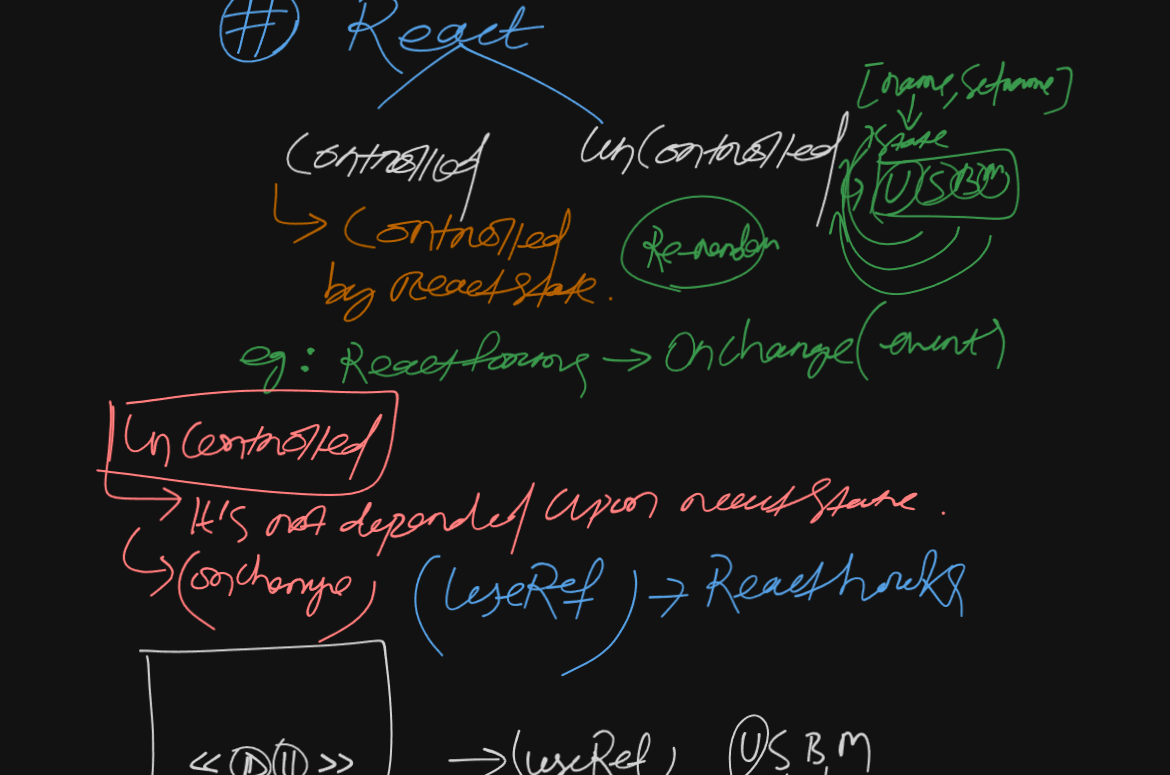 # React
[name, setname]
Controlled
UnControlled
State
U S B M
Controlled
by React State.
Re-render
eg: React forms → OnChange(event)
UnControlled
It's not depended upon react State.
(onchange)
(useRef) → React hooks
<< >>
→ (useRef) U S B M